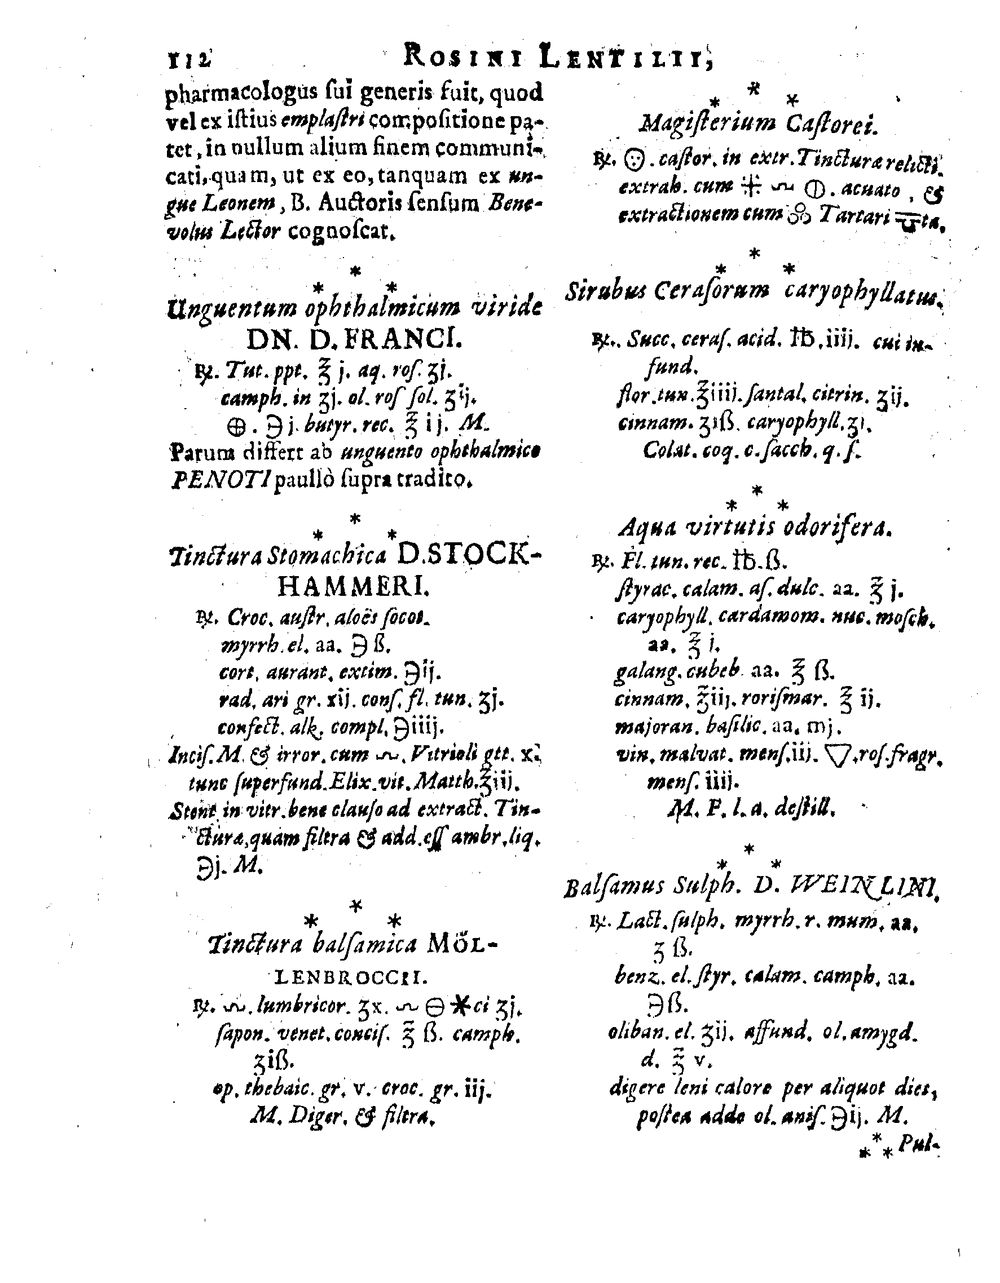 112 ROSINI LENTILII,
pharmacologus ſui generis fuit, quod
vel ex iſtius emplaſtri compoſitione pa-
tet, in nullum alium finem communi-
cati, quam, ut ex eo, tanquam ex un-
gue Leonem, B. Auctoris ſenſum Bene-
volus Lector cognoſcat.
*
* *
Unguentum ophthalmicum viride
DN. D. FRANCI.
℞. Tut. ppt. ℥ j. aq. roſ. ʒj.
camph. in ʒj. ol. roſ ſol. ʒij.
🜨. ℈ j. butyr. rec. ℥ ij. M.
Parum differt ab unguento ophthalmico
PENOTI paullò ſupra tradito.
*
* *
Tinctura Stomachica D. STOCK-
HAMMERI.
℞. Croc. auſtr. aloës ſocot.
myrrh. el. aa. ℈ ß.
cort. aurant. extim. ℈ij.
rad. ari gr. xij. conſ. fl. tun. ʒj.
confect. alk. compl. ℈iiij.
Inciſ. M. & irror. cum 🝆. Vitrioli gtt. x.
tunc ſuperfund. Elix. vit. Matth. ℥iij.
Stent in vitr. bene clauſo ad extract. Tin-
cturæ, quam filtra & add. eſſ ambr. liq.
℈j. M.
*
* *
Tinctura balſamica MÖL-
LENBROCCII.
℞. 🝆. lumbricor. ʒx. 🝆 🜔 ✱ci ʒj.
ſapon. venet. conciſ. ℥ ß. camph.
ʒiß.
op. thebaic. gr. v. croc. gr. iij.
M. Diger. & filtra.
*
* *
Magiſterium Caſtorei.
℞. caſtor. in extr. Tincturæ relicti.
extrah. cum 🝆 🜕. acuato, &
extractionem cum Tartari ta.
*
* *
Sirubus Ceraſorum caryophyllatus.
℞. Succ. ceraſ. acid. ℔. iiij. cui in-
fund.
flor. tun. ℥iiij. ſantal. citrin. ʒij.
cinnam. ʒiß. caryophyll. ʒj.
Colat. coq. c. ſacch. q. ſ.
*
* *
Aqua virtutis odorifera.
℞. Fl. tun. rec. ℔. ß.
ſtyrac. calam. aſ. dulc. aa. ℥ j.
caryophyll. cardamom. nuc. moſch.
aa. ℥ j.
galang. cubeb. aa. ℥ ß.
cinnam. ℥iij. roriſmar. ℥ ij.
majoran. baſilic. aa. mj.
vin. malvat. menſ. iij. 🜄. roſ. fragr.
menſ. iiij.
M. F. l. a. deſtill.
*
* *
Balſamus Sulph. D. WEINLINI.
℞. Lact. ſulph. myrrh. r. mum. aa.
ʒ ß.
benz. el. ſtyr. calam. camph. aa.
℈ß.
oliban. el. ʒij. affund. ol. amygd.
d. ℥ v.
digere leni calore per aliquot dies,
poſtea adde ol. aniſ. ℈ij. M.
*
* * Pul-